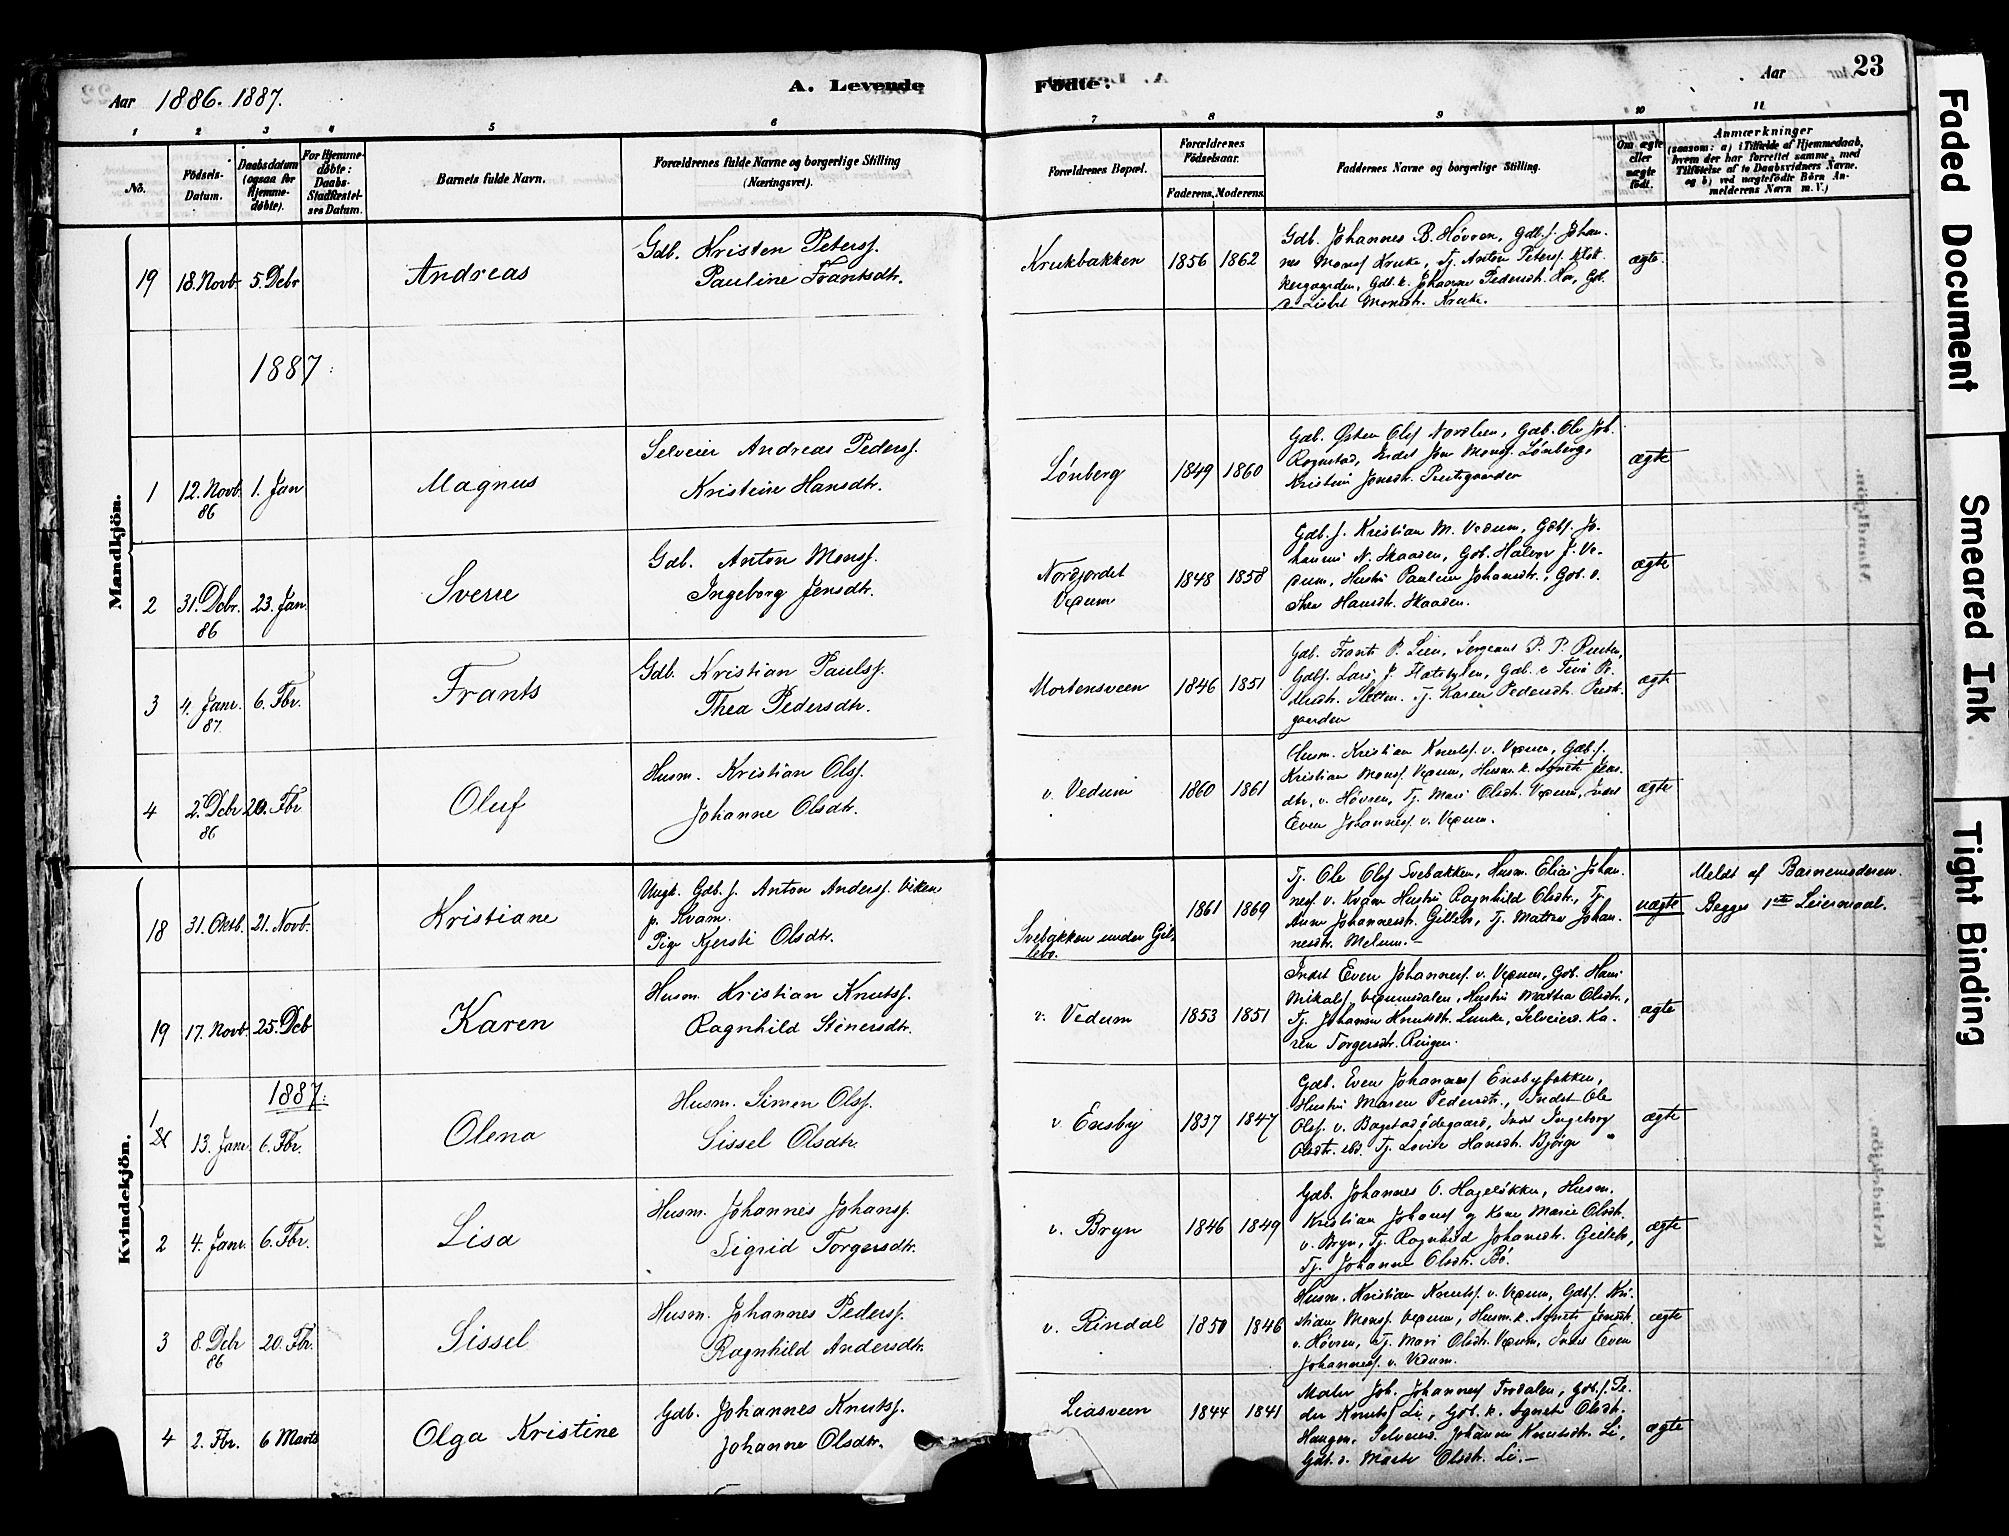 Aar 1886. 1887.
A. Levende
Fødte.
Aar
23
1
2
3
4
5
6
7
8
9
10
11
No.
Fødsels-
Datum.
Daabsdatum
(ogsaa for
Hjemme-
døbte).
For Hjemme-
døbte:
Daabs-
Stadfæstel-
ses Datum.
Barnets fulde Navn.
Forældrenes fulde Navne og borgerlige Stilling
(Næringsvei).
Forældrenes Bopæl.
Forældrenes
Fødselsaar.
Faderens. Moderens.
Faddernes Navne og borgerlige Stilling.
Om ægte
eller
uægte
født.
Anmærkninger
(saasom: a) i Tilfælde af Hjemmedaab,
hvem der har forrettet samme, med
Tilføielse af to Daabsvidners Navne,
og b) ved uægtefødte Börn An-
melderens Navn m. V.)
Mandkjön.
19
18. Novb.
5. Debr
Andreas
Gdb. Kristen Peterss.
Pauline Frantsdtr.
Krukbakken
1856
1862
Gdb. Johannes B. Høvren, Gdb.s. Johan-
nes Monss Kruke, Tj. Anton Peterss Klok-
kergaarden, Gdb.k. Johanne Pedersdt. Lo, Gd.
d. Lisbet Monsdt. Kruke.
ægte
1887.
1
12. Novb.
86
1. Jan
Magnus
Selveier Andreas Pederss.
Kristine Hansdtr.
Lønberg
1849
1860
Gdb. Østen Olss Nordlien, Gdb. Ole Joh.
Rognstad, Inds Jon Monss. Lønberg,
Kristine Jonsdt. Prestgaarden
ægte
2
31. Debr.
86
23. Jan.
Sverre
Gdb. Anton Monss.
Ingeborg Jensdtr.
Nordjordet
Vedum
1848
1858
Gdb.s. Kristian M. Vedum, Gdbs. Jo-
hannes N. Skaaden, Gdb. Halvor J. Ve-
dum, Hustru Pauline Johansdt., Gdb. d.
Thea Hansdt. Skaaden.
ægte
3
4. Janr.
87
6. Fbr.
Frants
Gdb. Kristian Paulss.
Thea Pedersdtr.
Mortensveen
1846
1851
Gdb. Frants P. Lien, Sergeant P. P. Rusten,
Gdbs. Lars J. Flatebylen, Gdb. d Tina Pe-
dersdt. Sletten. Tj. Karen Pedersdt. Prest-
gaarden
ægte
4
2. Debr
86
20. Fbr
Oluf
Husm. Kristian Olss.
Johanne Olsdtr.
v. Vedum
1860
1861
Husm. Kristian Knutss. v. Vedum, Gdb.s.
Kristian Monss. Vedum, Husm. k. Agnete Jens-
dtr. v. Høvren, Tj. Mari Olsdt. Vedum, Inds
Even Johanness. v. Vedum.
ægte
Kvindekjön.
18
31. Oktb.
21. Novb.
Kristiane
Ungk. Gdb.s. Anton Anderss. Viken
p. Kvam.
Pige Kjersti Olsdtr.
Svebakken under Gil-
lebo.
1861
1869
Tj. Ole Olss Svebakken, Husm. Elias Johan-
ness v. Kvam Hustru Ragnhild Olsdt., Tj.
Anne Johannesdt. Gillebo, Tj. Mathea Johan-
nesdt. Melum.
uægte
Meldt af Barnemoderen.
Begges 1ste Leiermaal.
19
17. Novb.
25. Deb
Karen
Husm. Kristian Knutss.
Ragnhild Stenersdtr.
v. Vedum
1853
1851
Inds Even Johanness. v. Vedum, Gdb. Hans
Mikals. Vedumsdalen, Hustru Mathea Olsdt.,
Tj. Johanne Knutsdt. Lunke, Selveierd. Ka-
ren Torgersdt. Ringen.
ægte
1887.
1
13. Janr.
6. Fbr.
Olena
Husm. Simen Olss.
Sissel Olsdtr.
v. Ensby
1837
1847
Gdb. Even Johanness Ensbybakken,
Hustru Maren Pedersdt., Inds Ole
Olss. v. Bagstadødegaard, Inds Ingeborg
Olsdt. ibd. Tj. Lovise Hansdt. Bjørge
ægte
2
4. Janr.
6. Fbr.
Lisa
Husm. Johannes Johanss.
Sigrid Torgersdtr.
v. Bryn
1846
1849
Gdb. Johannes O. Hageløkken, Husm.
Kristian Johanss og Kone Marie Olsdt.
v. Bryn, Tj. Ragnhild Johansdt. Gillebo,
Tj. Johanne Olsdt. Bø.
ægte
3
8. Debr
86
20. Fbr.
Sissel
Husm. Johannes Pederss.
Ragnhild Andersdtr.
v. Rindal
1850
1846
Husm. Kristian Knutss. v. Vedum, Gdb.s. Kri-
stian Monss. Vedum, Husm. k. Agnete Jensdt.
v. Høvren, Tj. Mari Olsdt. Vedum, Inds Even
Johanness. v. Vedum.
ægte
4
2. Fbr.
6 Marts
Olga Kristine
Gdb. Johannes Knutss.
Johanne Olsdtr.
Liasveen
1844
1841
Maler Joh. Johanness Frodalen, Gdb.s. Pe-
der Knutss Li, Gdb. k. Agnete Olsdt.
Haugen, Selveierd. Johanne Knutsdt. Li,
Gdb. d. Marte Olsdt. Li.
ægte
Faded Document
Smeared Ink
Tight Binding